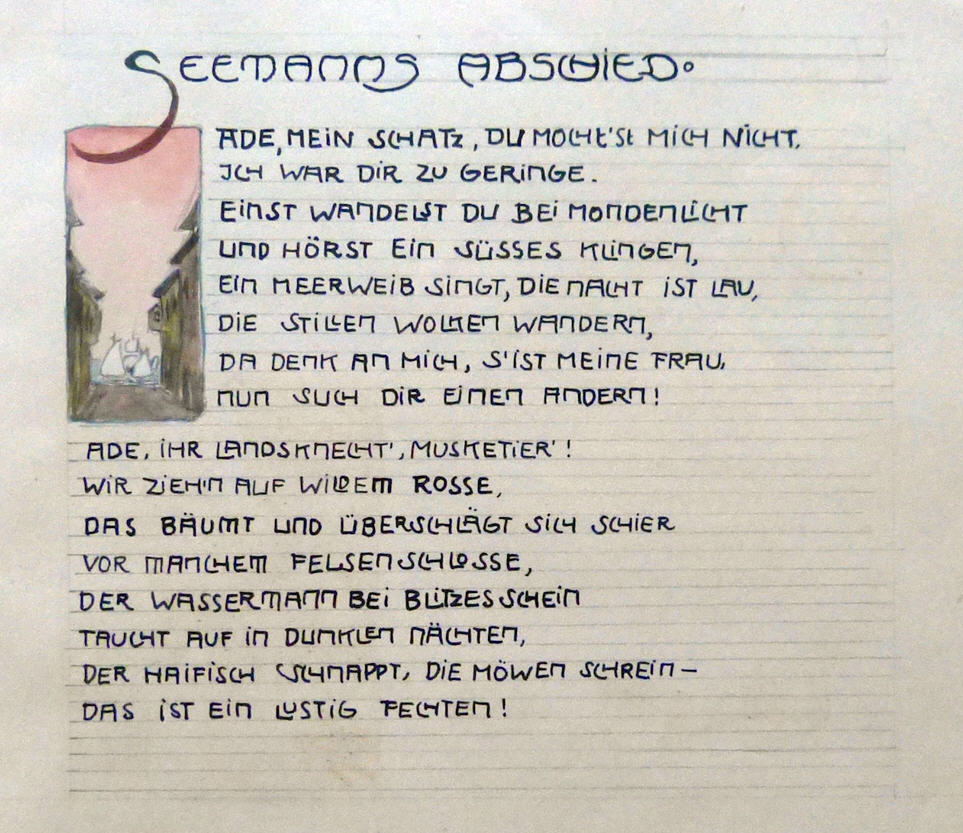 SEEMANNS ABSCHIED.
ADE, MEIN SCHATZ, DU MOCHT'ST MICH NICHT,
ICH WAR DIR ZU GERINGE.
EINST WANDELST DU BEI MONDENLICHT
UND HÖRST EIN SÜSSES KLINGEN,
EIN MEERWEIB SINGT, DIE NACHT IST LAU,
DIE STILLEN WOLKEN WANDERN,
DA DENK AN MICH, S'IST MEINE FRAU,
NUN SUCH DIR EINEN ANDERN!
ADE, IHR LANDSKNECHT', MUSKETIER'!
WIR ZIEH'N AUF WILDEM ROSSE,
DAS BÄUMT UND ÜBERSCHLÄGT SICH SCHIER
VOR MANCHEM FELSENSCHLOSSE,
DER WASSERMANN BEI BLITZESSCHEIN
TAUCHT AUF IN DUNKLEN NÄCHTEN,
DER HAIFISCH SCHNAPPT, DIE MÖWEN SCHREIN –
DAS IST EIN LUSTIG FECHTEN!